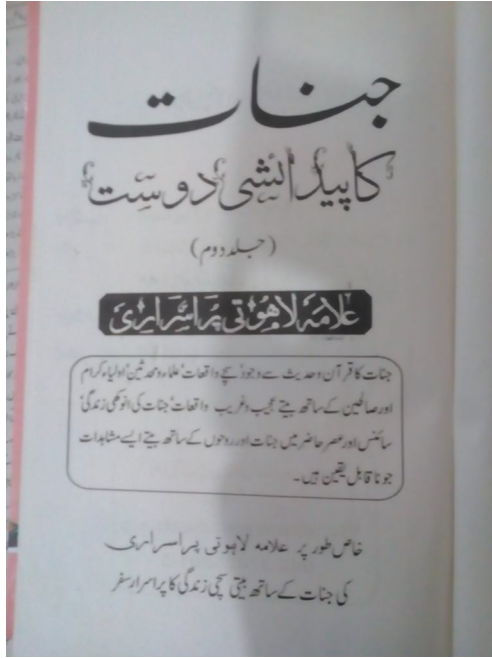 جنات
کا پیدائشی دوست
(جلد دوم)
علامہ لاہوتی پراسراری
جنات کا قرآن و حدیث سے وجود' سچے واقعات' علماء و محدثین' اولیاء کرام
اور صالحین کے ساتھ بیتے عجیب و غریب واقعات' جنات کی انوکھی زندگی'
سائنس اور عصر حاضر میں جنات اور روحوں کے ساتھ بیتے ایسے مشاہدات
جو ناقابل یقین ہیں۔
خاص طور پر علامہ لاہوتی پراسراری
کی جنات کے ساتھ بیتی سچی زندگی کا پراسرار سفر